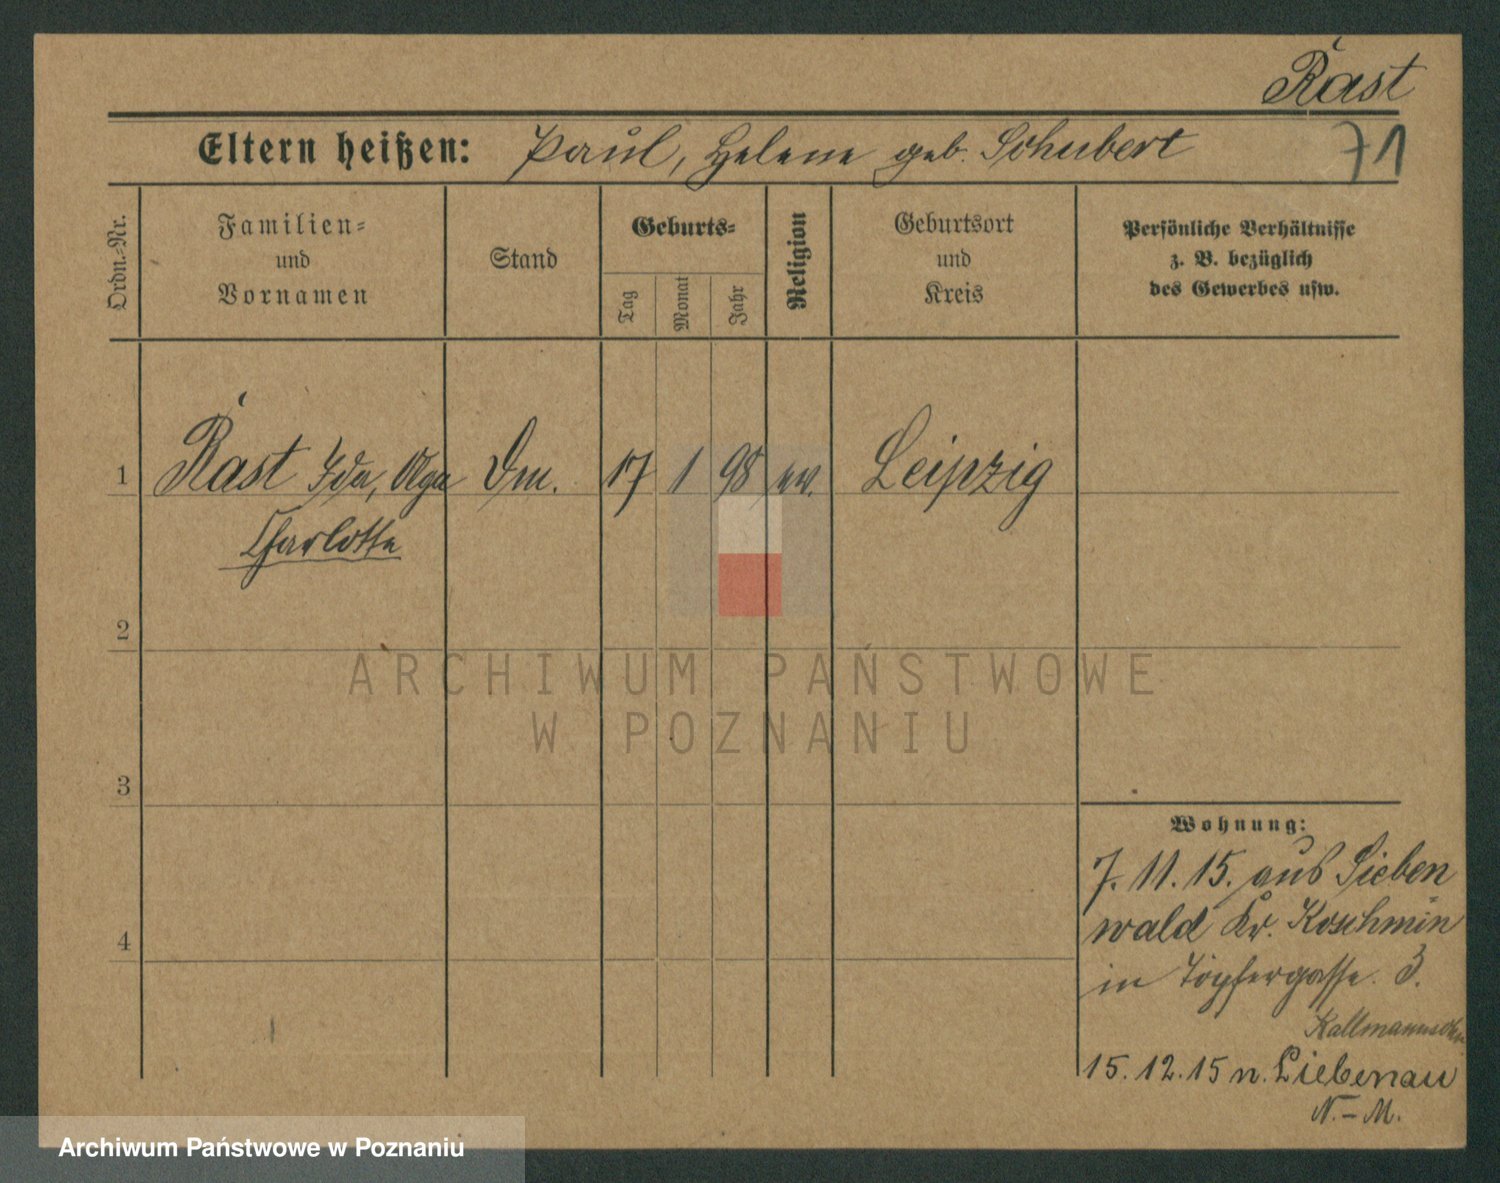 Rast
Eltern heißen: Paul, Helene geb. Schubert
71
Ordn.-Nr.
Familien-
und
Vornamen
Stand
Geburts-
Tag
Monat
Jahr
Religion
Geburtsort
und
Kreis
Persönliche Verhältnisse
z. B. bezüglich
des Gewerbes usw.
1 Rast Ida, Olga Dm. 17 1 98 ev. Leipzig
Charlotte
2
ARCHIWUM PAŃSTWOWE
W POZNANIU
3
Wohnung:
7. 11. 15. aus Sieben
4
wald Kr. Koschmin
in Töpfergasse 3.
15. 12. 15 n. Liebenau
N.-M.
Archiwum Państwowe w Poznaniu